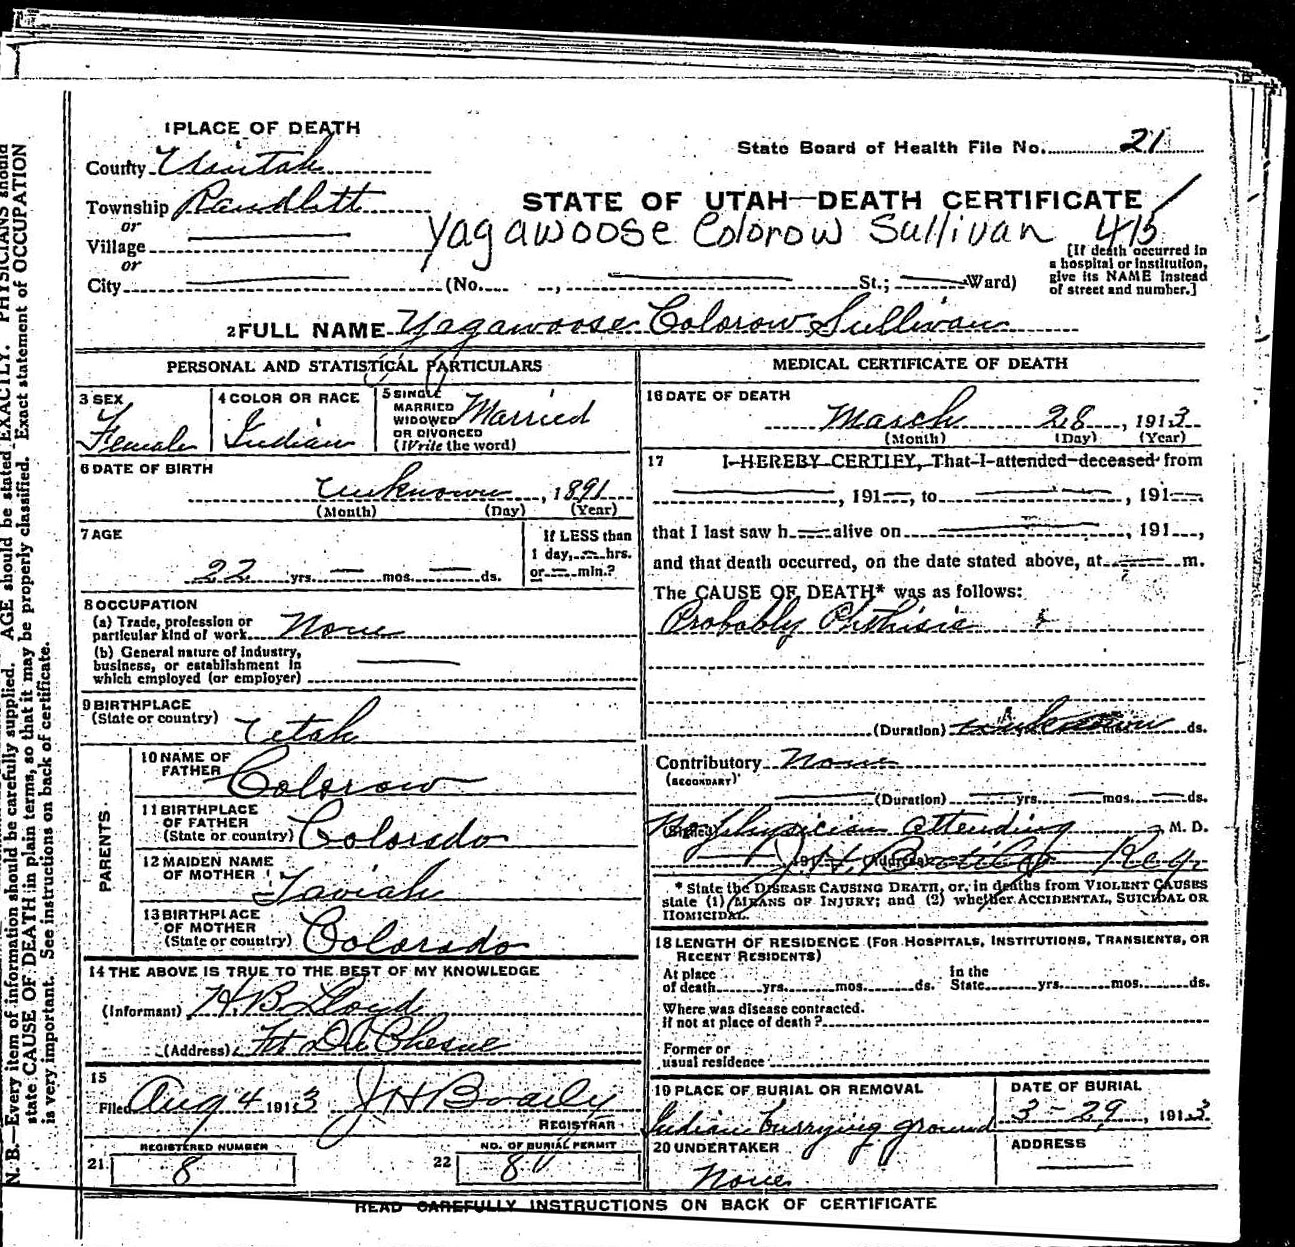 1 PLACE OF DEATH
County Uintah
State Board of Health File No. 21
Township Randlett
or
Village
or
City (No. St.; Ward)
STATE OF UTAH—DEATH CERTIFICATE
Yagawoose Colorow Sullivan 415
[If death occurred in
a hospital or institution,
give its NAME instead
of street and number.]
2 FULL NAME Yagawoose Colorow Sullivan
PERSONAL AND STATISTICAL PARTICULARS
3 SEX
Female
4 COLOR OR RACE
Indian
5 SINGLE
MARRIED
WIDOWED
OR DIVORCED
(Write the word)
Married
6 DATE OF BIRTH
Unknown, 1891
(Month) (Day) (Year)
7 AGE
22 yrs. — mos. — ds.
If LESS than
1 day, — hrs.
or — min.?
8 OCCUPATION
(a) Trade, profession or
particular kind of work None
(b) General nature of industry,
business, or establishment in
which employed (or employer)
9 BIRTHPLACE
(State or country) Utah
PARENTS
10 NAME OF
FATHER Colorow
11 BIRTHPLACE
OF FATHER
(State or country) Colorado
12 MAIDEN NAME
OF MOTHER Taviah
13 BIRTHPLACE
OF MOTHER
(State or country) Colorado
14 THE ABOVE IS TRUE TO THE BEST OF MY KNOWLEDGE
(Informant) H.B. Lloyd
(Address) Ft Du Chesne
15
Filed Aug 4 1913 J H B
REGISTRAR
REGISTERED NUMBER
21 8
NO. OF BURIAL PERMIT
22 8
MEDICAL CERTIFICATE OF DEATH
16 DATE OF DEATH
March 28, 1913
(Month) (Day) (Year)
17 I HEREBY CERTIFY, That I attended deceased from
, 191 , to , 191
that I last saw h alive on , 191 ,
and that death occurred, on the date stated above, at m.
The CAUSE OF DEATH* was as follows:
Probably Phthisis
(Duration) Unknown mos. ds.
Contributory None
(SECONDARY)
(Duration) — yrs. — mos. — ds.
(Signed) No physician attending M. D.
191 (Address) J.H. Reg.
* State the DISEASE CAUSING DEATH, or, in deaths from VIOLENT CAUSES
state (1) MEANS OF INJURY; and (2) whether ACCIDENTAL, SUICIDAL OR
HOMICIDAL.
18 LENGTH OF RESIDENCE (FOR HOSPITALS, INSTITUTIONS, TRANSIENTS, OR
RECENT RESIDENTS)
At place
of death yrs. mos. ds.
In the
State yrs. mos. ds.
Where was disease contracted.
if not at place of death?
Former or
usual residence
19 PLACE OF BURIAL OR REMOVAL
Indian Burrying ground
DATE OF BURIAL
3-29, 1913
20 UNDERTAKER
None
ADDRESS
READ CAREFULLY INSTRUCTIONS ON BACK OF CERTIFICATE
N. B.—Every item of information should be carefully supplied. AGE should be stated EXACTLY. PHYSICIANS should
state CAUSE OF DEATH in plain terms, so that it may be properly classified. Exact statement of OCCUPATION
is very important. See instructions on back of certificate.